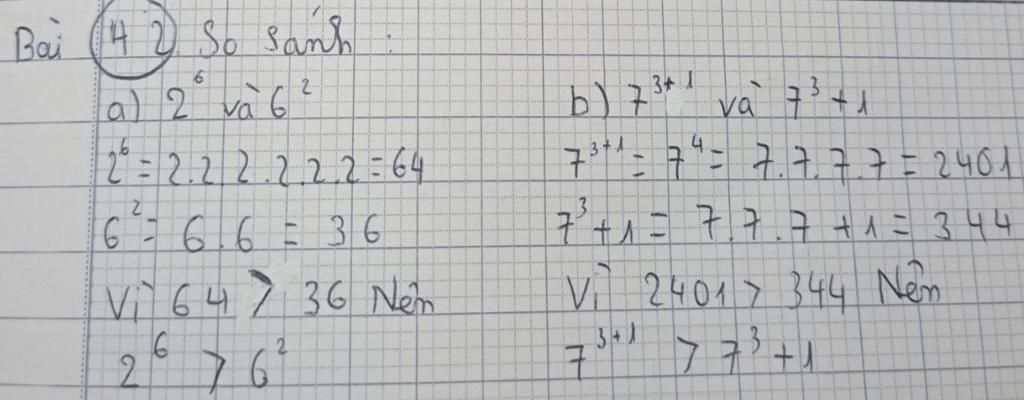 Bài 42 So sánh :
a) 2⁶ và 6²
2⁶ = 2.2.2.2.2.2 = 64
6² = 6.6 = 36
Vì 64 > 36 Nên
2⁶ > 6²
b) 7³⁺¹ và 7³ + 1
7³⁺¹ = 7⁴ = 7.7.7.7 = 2401
7³ + 1 = 7.7.7 + 1 = 344
Vì 2401 > 344 Nên
7³⁺¹ > 7³ + 1